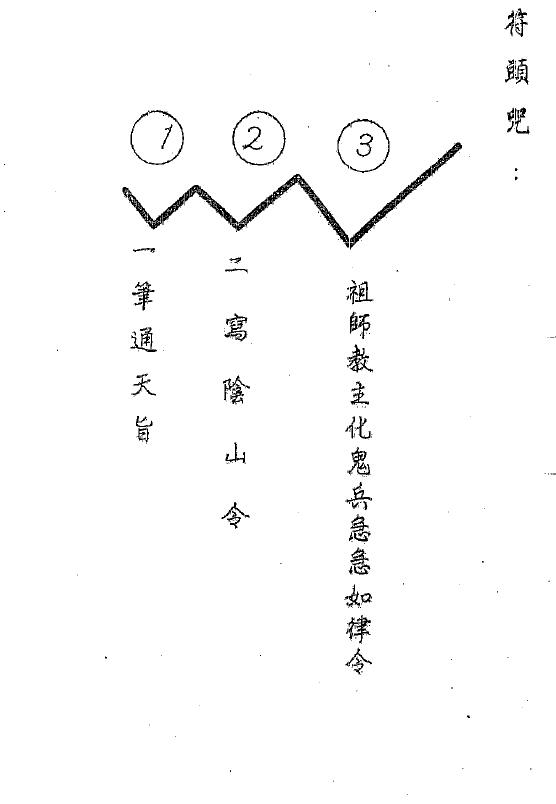 符頭咒：
1
一筆通天旨
2
二寫陰山令
3
祖師教主化鬼兵急急如律令